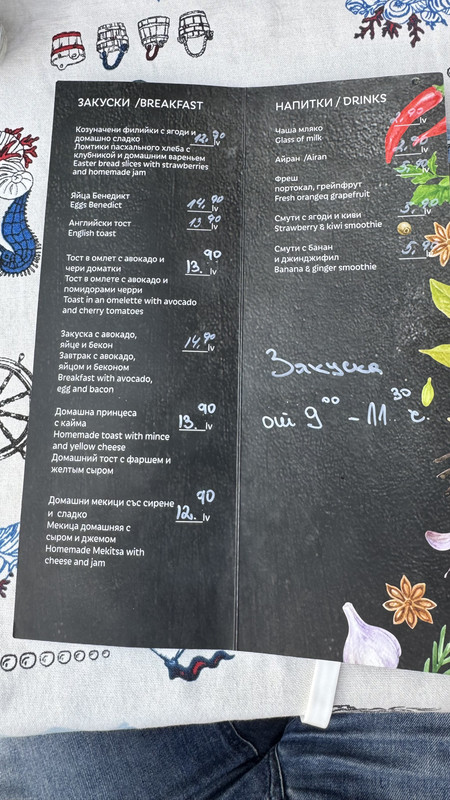 ЗАКУСКИ /BREAKFAST
Козуначени филийки с ягоди и
домашно сладко 12,90 lv
Ломтики пасхального хлеба с
клубникой и домашним вареньем
Easter bread slices with strawberries
and homemade jam
Яйца Бенедикт
Eggs Benedict 14,90 lv
Английски тост 13,90 lv
English toast
Тост в омлет с авокадо и
чери доматки 13.90 lv
Тост в омлете с авокадо и
помидорами черри
Toast in an omelette with avocado
and cherry tomatoes
Закуска с авокадо,
яйце и бекон 14,90 lv
Завтрак с авокадо,
яйцом и беконом
Breakfast with avocado,
egg and bacon
Домашна принцеса
с кайма 13.90 lv
Homemade toast with mince
and yellow cheese
Домашний тост с фаршем и
желтым сыром
Домашни мекици със сирене
и сладко 12.90 lv
Мекица домашняя с
сыром и джемом
Homemade Mekitsa with
cheese and jam
НАПИТКИ / DRINKS
Чаша мляко
Glass of milk lv
Айран /Airan lv
Фреш 5,90
портокал, грейпфрут lv
Fresh orangeq grapefruit
Смути с ягоди и киви 5,90 lv
Strawberry & kiwi smoothie
Смути с банан
и джинджифил 5,90 lv
Banana & ginger smoothie
Закуска
от 9⁰⁰ - 11³⁰ ч.